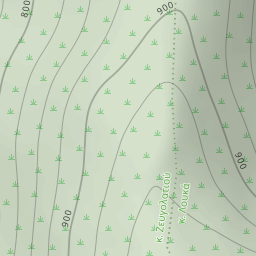 800
900
900
900
κ. Ζευγολατειού
κ. Λουκά